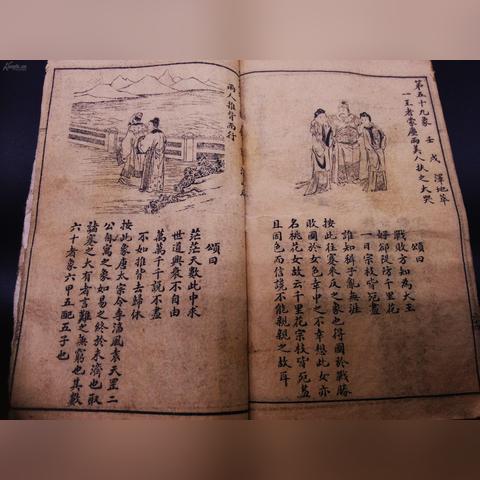 第五十九象 壬戌 澤地萃
一王者蒙塵兩美人扶之大哭
頌曰
戰敗方知為大王
好卻從坊千里花
一日宗枝皆死盡
誰知猂子亂無涯
按此往蹇來反之象也得國於戰勝
敗國於女色幸中之不幸想此女亦
名桃花女故云千里花宗枝皆死盡
且因色而信說不能親親之故耳
兩人推背而行
頌曰
茫茫天數此中求
世道興衰不自由
萬萬千千說不盡
不如推背去歸休
按此象唐太宗令李淳風袁天罡二
公自寓之象如易之終於未濟也取
諸蹇之大有者言難之無窮也其數
六十者象六甲五配五子也